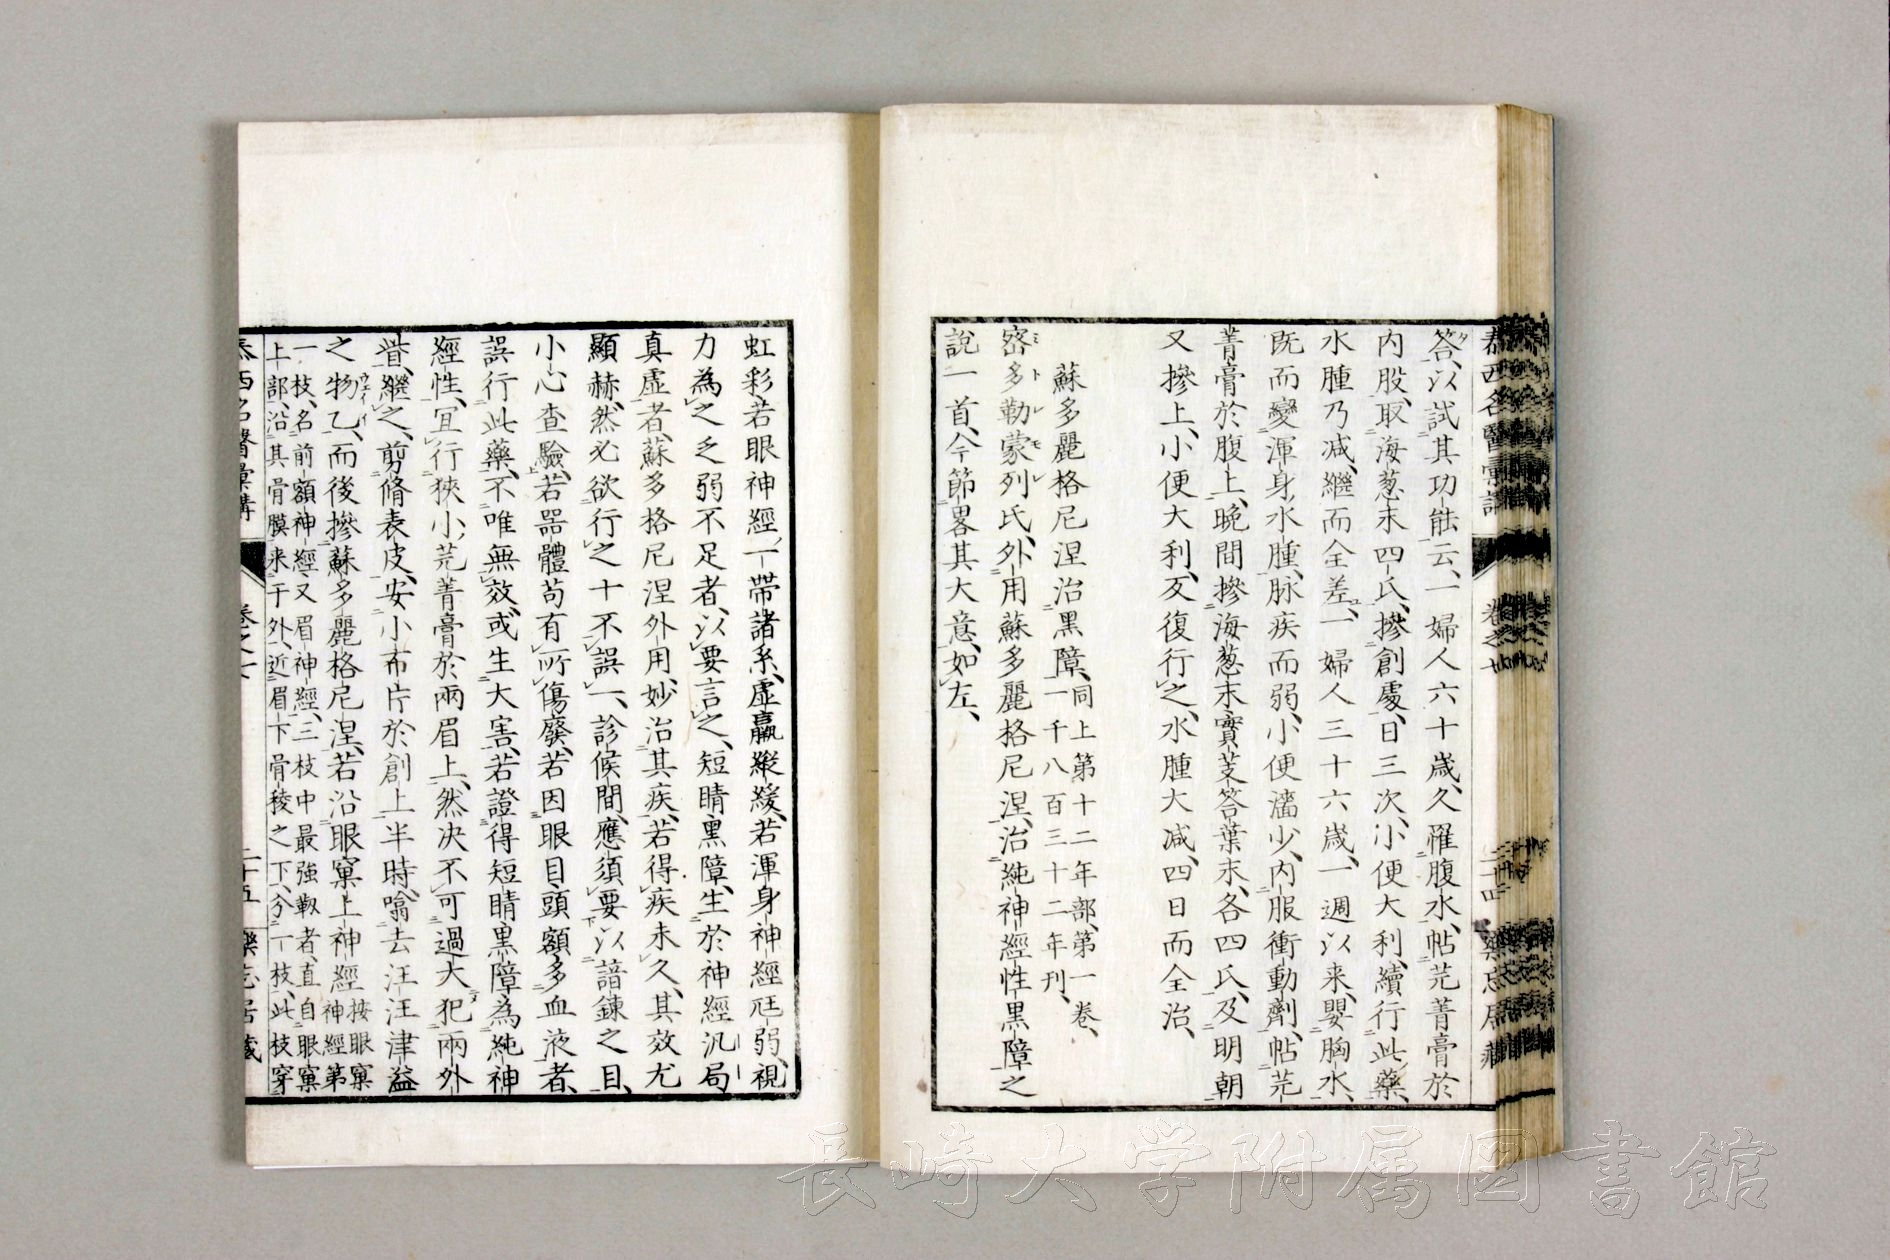 泰西名醫彙講 卷之七 二十四 樂志居藏
答、以試其功能云、一婦人六十歲、久罹腹水、帖芫菁膏於
内股、取海葱末四氏、摻創處、日三次、小便大利、續行此藥、
水腫乃減、繼而全差、一婦人三十六歲、一週以来、嬰胸水、
既而變渾身水腫、脉疾而弱、小便濇少、内服衝動劑、帖芫
菁膏於腹上、晩間摻海葱末實芰答葉末、各四氏、及明朝
又摻上、小便大利、反復行之、水腫大減、四日而全治、
蘇多麗格尼涅治黑障、同上第十二年部、第一卷、
一千八百三十二年刊、
密多勒蒙列氏、外用蘇多麗格尼涅、治純神經性黑障之
説一首、今節畧其大意、如左、
虹彩、若眼神經、一帶諸系、虚羸縱緩、若渾身神經尫弱、視
力為之乏弱不足者、以要言之、短睛黑障、生於神經汎局
真虚者、蘇多格尼涅外用、妙治其疾、若得疾未久、其效尤
顯赫、然必欲行之十不誤一、診候間、應須要以諳鍊之目、
小心查驗、若噐體苟有所傷廢、若因眼目頭額多血液者、
誤行此藥、不唯無效、或生大害、若證得短睛黑障為純神
經性、宜行狹小芫菁膏於兩眉上、然决不可過大犯兩外
眥、繼之、剪脩表皮、安小布片於創上半時、噏去汪汪津溢
之物乙、而後摻蘇多麗格尼涅、若沿眼窠上神經 按眼窠
神經第
一枝、名前額神經、又眉神經、三枝中最強靱者、直自眼窠
上部、沿其骨膜来于外、近眉下骨稜之下、分一枝、此枝穿
泰西名醫彙講 卷之七 二十五 樂志居藏
長崎大学附属図書館